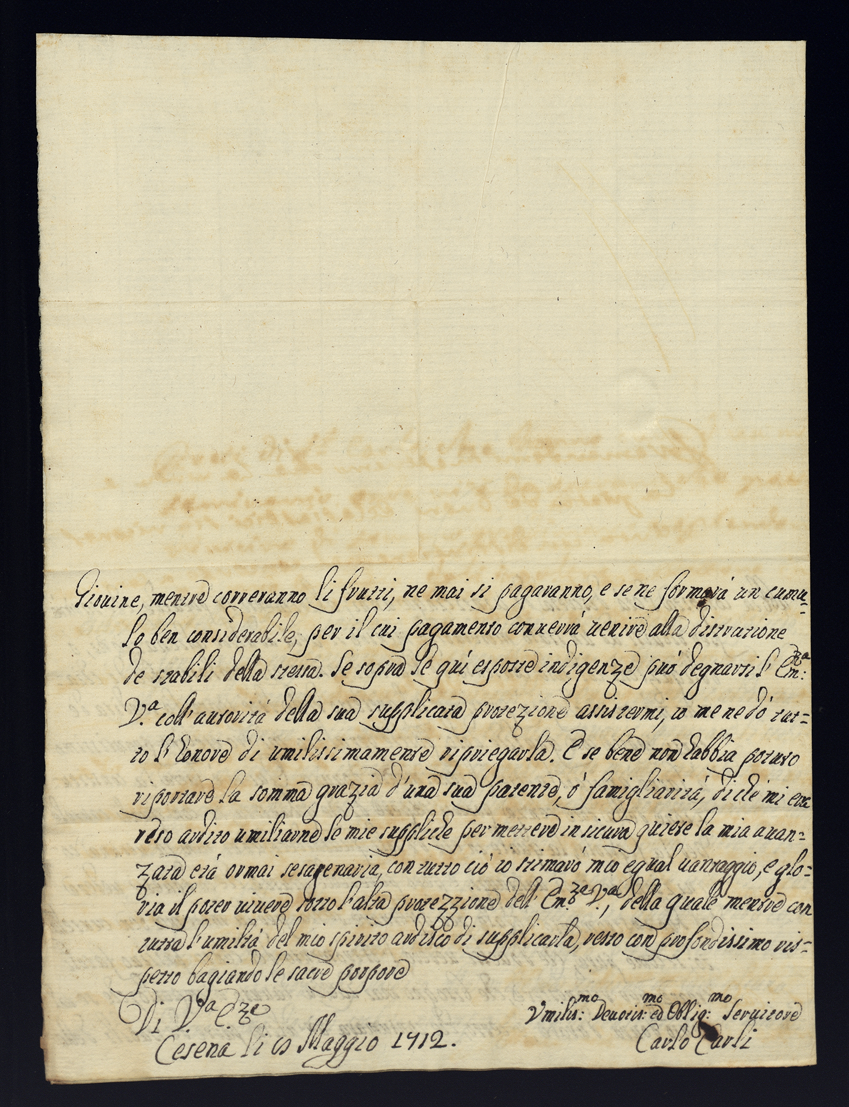 Giovine, mentre correranno li frutti, ne mai si pagaranno, e se ne formará un cumu=
lo ben considerabile, per il cui pagamento converrá venire alla distrazione
de stabili della stessa. Se sopra le quí esposte indigenze può degnarsi l'Em:za
V.a coll'autoritá della sua supplicata protezzione assistermi, io me ne dó tut=
to l'honore di umilissimamente ripriegarla. E se bene non habbia potuto
riportare la somma grazia d'una sua patente, ó famigliaritá, di che mi ero
reso ardito umiliarne le mie suppliche per mettere in sicura quiete la mia avan=
zata etá ormai sesagenaria, con tutto ció io stimaró mio egual vantaggio, e glo=
ria il poter vivere sotto l'alta protezzione dell'Em:za V.a, della quale mentre con
tutta l'umiltá del mio spirito ardisco di supplicarla, resto con profondissimo ris=
petto bagiando le sacre porpore
Di V.a E.za
Umilis:mo Devotis:mo ed Oblig:mo Servitore
Cesena li Maggio 1712.
Carlo Carli